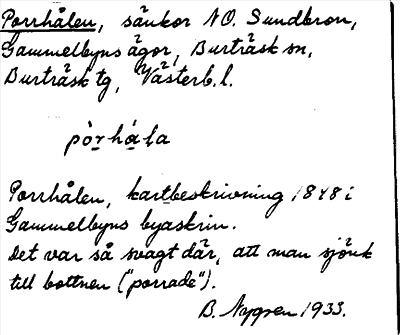 Porrhålen, sänkor NO. Sundbron,
Gammelbyns ägor, Burträsk sn,
Burträsk tg, Västerb. l.
pòrhála
Porrhålen, kartbeskrivning 1848 i
Gammelbyns byaskrin.
Det var så svagt där, att man sjönk
till bottnen ("porrade").
B. Nygren 1933.